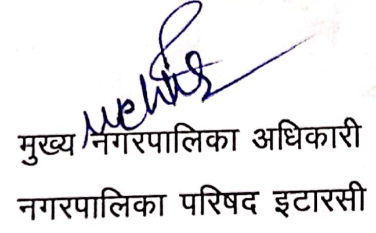 मुख्य नगरपालिका अधिकारी
नगरपालिका परिषद इटारसी